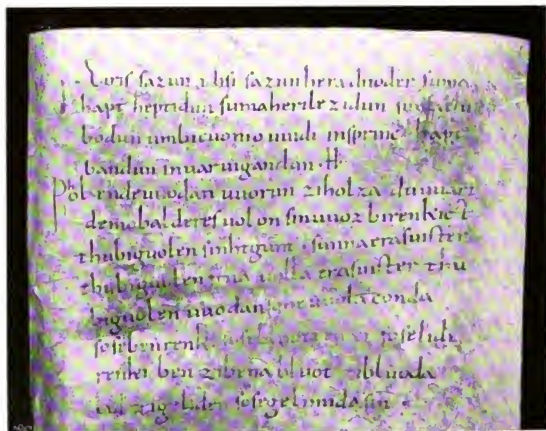 Eiris sazun idisi sazun hera duoder suma
hapt heptidun sumaherilezidun sumaclu
bodun umbicuonio uuidi insprinc hapt
bandun inuar uigandun .H.
Phol endeuuodan uuorun ziholza du uuart
demobalderes uolon sinuuoz birenkict
thubiguolen sinhtgunt . sunnaerasuister
thubiguolen friia uolla erasuister thu
biguolen uuodan sohe uuola conda
sosebenrenki sosebluotrenki soselidi
renki ben zibena bluot zibluoda
lid zigeliden sosegelimida sin